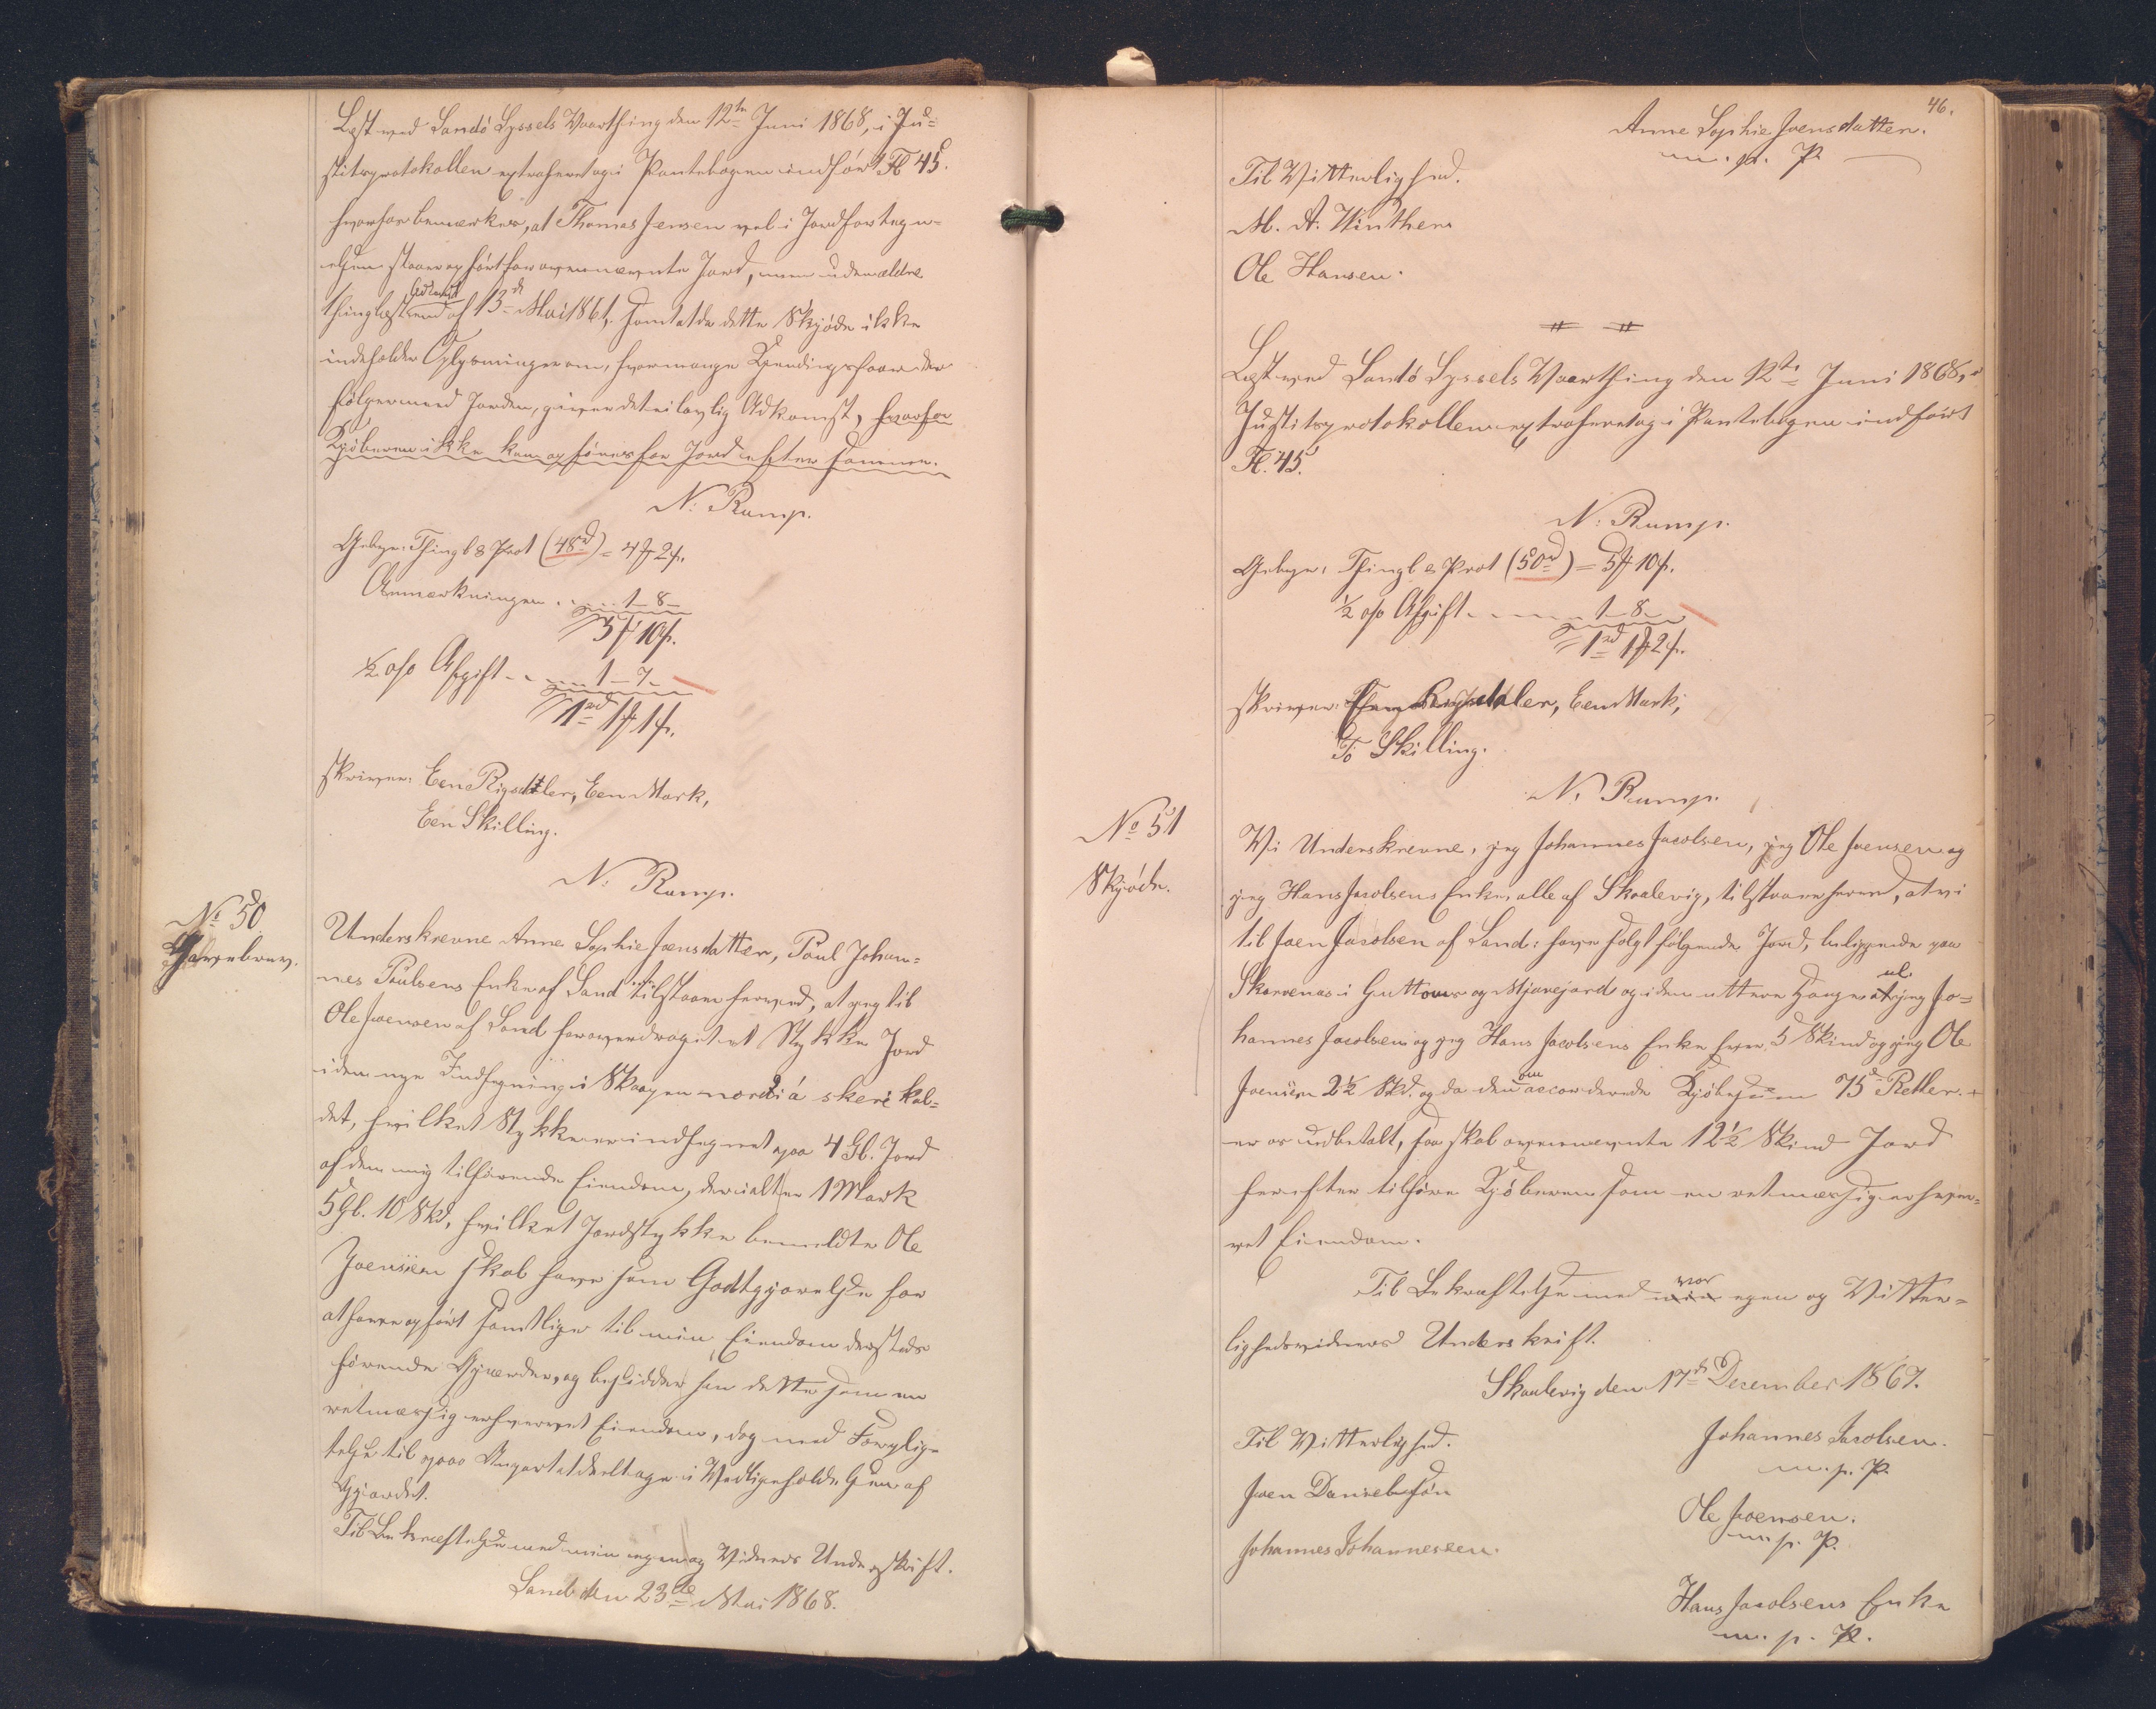 Læst ved Sandö Syssels Vaarthing den 12te Juni 1868, i Ju-
stitsprotokollen extraheret og i Pantebogen indført Fl 45.
hvorfor bemærkes, at Thomas Jensen vel i Jordforteg-
nelsen staaer opført for ovennævnte Jord, men uden ældre
thinglæst Adkomst end af 13de Mai 1861, samt at da dette Skjöde ikke
indeholder Oplysninger om, hvormange faar der
følger med Jorden, giver det ei lovlig Adkomst, hvorfor
Kjøberen ikke kan opføres for Jord efter samme.
N. Rump.
Gebyr: Thingl & Prot (48d) = 4 # 2 s.
Anmærkningen . . . . 1 - 8 -
5 # 10 s.
1/2 o/o Afgift - . . . 1 - 7 -
1 rd 1 # 1 s.
skriver: Een Rigsdaler, Een Mark,
Een Skilling.
N. Rump.
No 50.
Gavebrev.
Underskrevne Anne Sophie Joensdatter, Poul Johan-
nes Poulsens Enke af Sand tilstaaer herved, at jeg til
Ole Joensen af Sand har overdraget et Stykke Jord
i den nye Indhegning i Skaapen nordi á skeri kal-
det, hvilket Stykke er indhegnet paa 4 Gl. Jord
af den mig tilhørende Eiendom, der ialt er 1 Mark
5 Gl. 10 Skd, hvilket Jordstykke bemeldte Ole
Joensen skal have som Godtgjørelse for
at have opført samtlige til min Eiendom dersteds
hørende Gjærder, og besidder han dette som en
retmæssig erhvervet Eiendom, dog med Forplig-
telse til paa Anpart at deeltage i Vedligeholdelsen af
Gjærdet.
Til Bekræftelse med min egen og Vidners Underskrift.
Sand den 23de Mai 1868.
46.
Anne Sophie Joensdatter.
m. p. P.
Til Vitterlighed.
M. A. Winther
Ole Hansen.
Læst ved Sandö Syssels Vaarthing den 12te Juni 1868, i
Justitsprotokollen extraheret og i Pantebogen indført
Fl. 45.
N. Rump.
Gebyr: Thingl & Prot (50d) = 5 # 10 s.
1/2 o/o Afgift - - - - - 1 - 8 -
1 rd 1 # 2 s.
skriver: Een Rigsdaler, Een Mark,
To Skilling.
N. Rump.
No 51
Skjöde.
Vi Underskrevne, jeg Johannes Jacobsen, jeg Ole Joensen og
jeg Hans Jacobsens Enke, alle af Skaalevig, tilstaae herved, at vi
til Joen Jacobsen af Sand: have solgt følgende Jord, beliggende paa
Skarvenæs i Guttons og Mjavejord og i den yttere Hauge nl. at jeg Jo-
hannes Jacobsen og jeg Hans Jacobsens Enke hver 5 Skind og jeg Ole
Joensen 2 1/2 Skd. og da den om accorderede Kjøbesum 75d Rdler. +
er os udbetalt, saa skal ovennævnte 12 1/2 Skind Jord
herefter tilhøre Kjøberen som en retmæssig erhver-
vet Eiendom.
Til Bekræftelse med min vor egen og Vitter-
lighedsvidners Underskrift.
Skaalevig den 17de December 1867.
Til Vitterlighed.
Joen Danielsøn
Johannes Johannessen.
Johannes Jacobsen.
m. p. P.
Ole Joensen.
m. p. P.
Hans Jacobsens Enke
m. p. P.